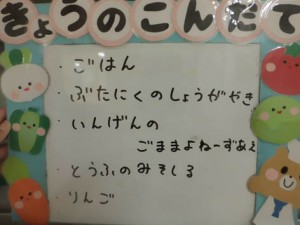 きょうのこんだて
・ごはん
・ぶたにくのしょうがやき
・いんげんの
ごままよねーずあえ
・とうふのみそしる
・りんご